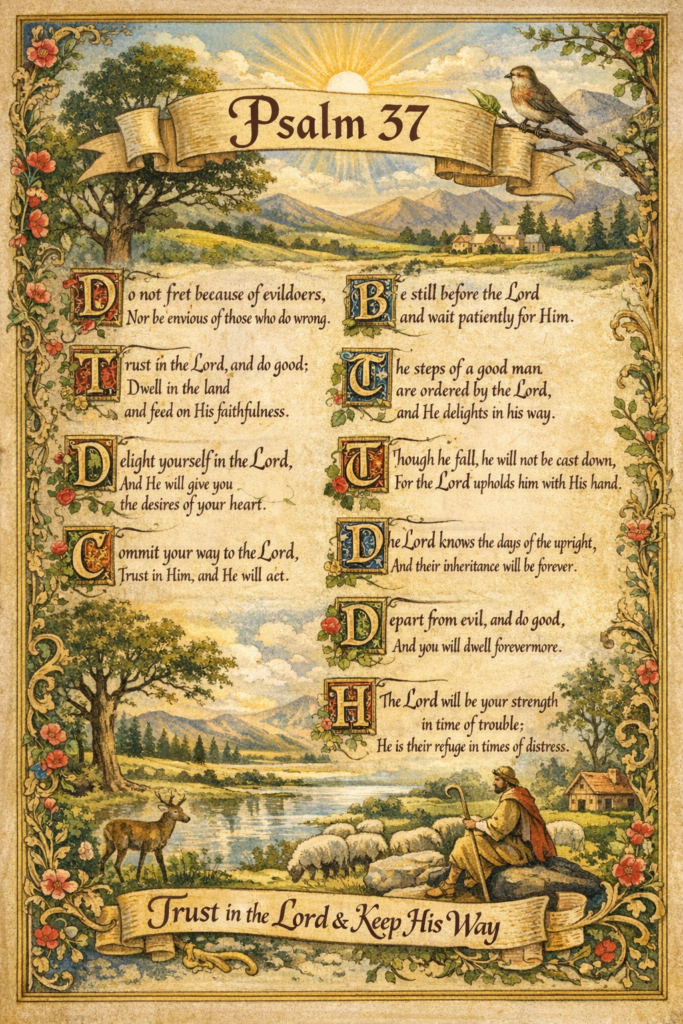 Psalm 37
Do not fret because of evildoers,
Nor be envious of those who do wrong.
Trust in the Lord, and do good;
Dwell in the land
and feed on His faithfulness.
Delight yourself in the Lord,
And He will give you
the desires of your heart.
Commit your way to the Lord,
Trust in Him, and He will act.
Be still before the Lord
and wait patiently for Him.
The steps of a good man
are ordered by the Lord,
and He delights in his way.
T Though he fall, he will not be cast down,
For the Lord upholds him with His hand.
Dhe Lord knows the days of the upright,
And their inheritance will be forever.
Depart from evil, and do good,
And you will dwell forevermore.
H The Lord will be your strength
in time of trouble;
He is their refuge in times of distress.
Trust in the Lord & Keep His Way